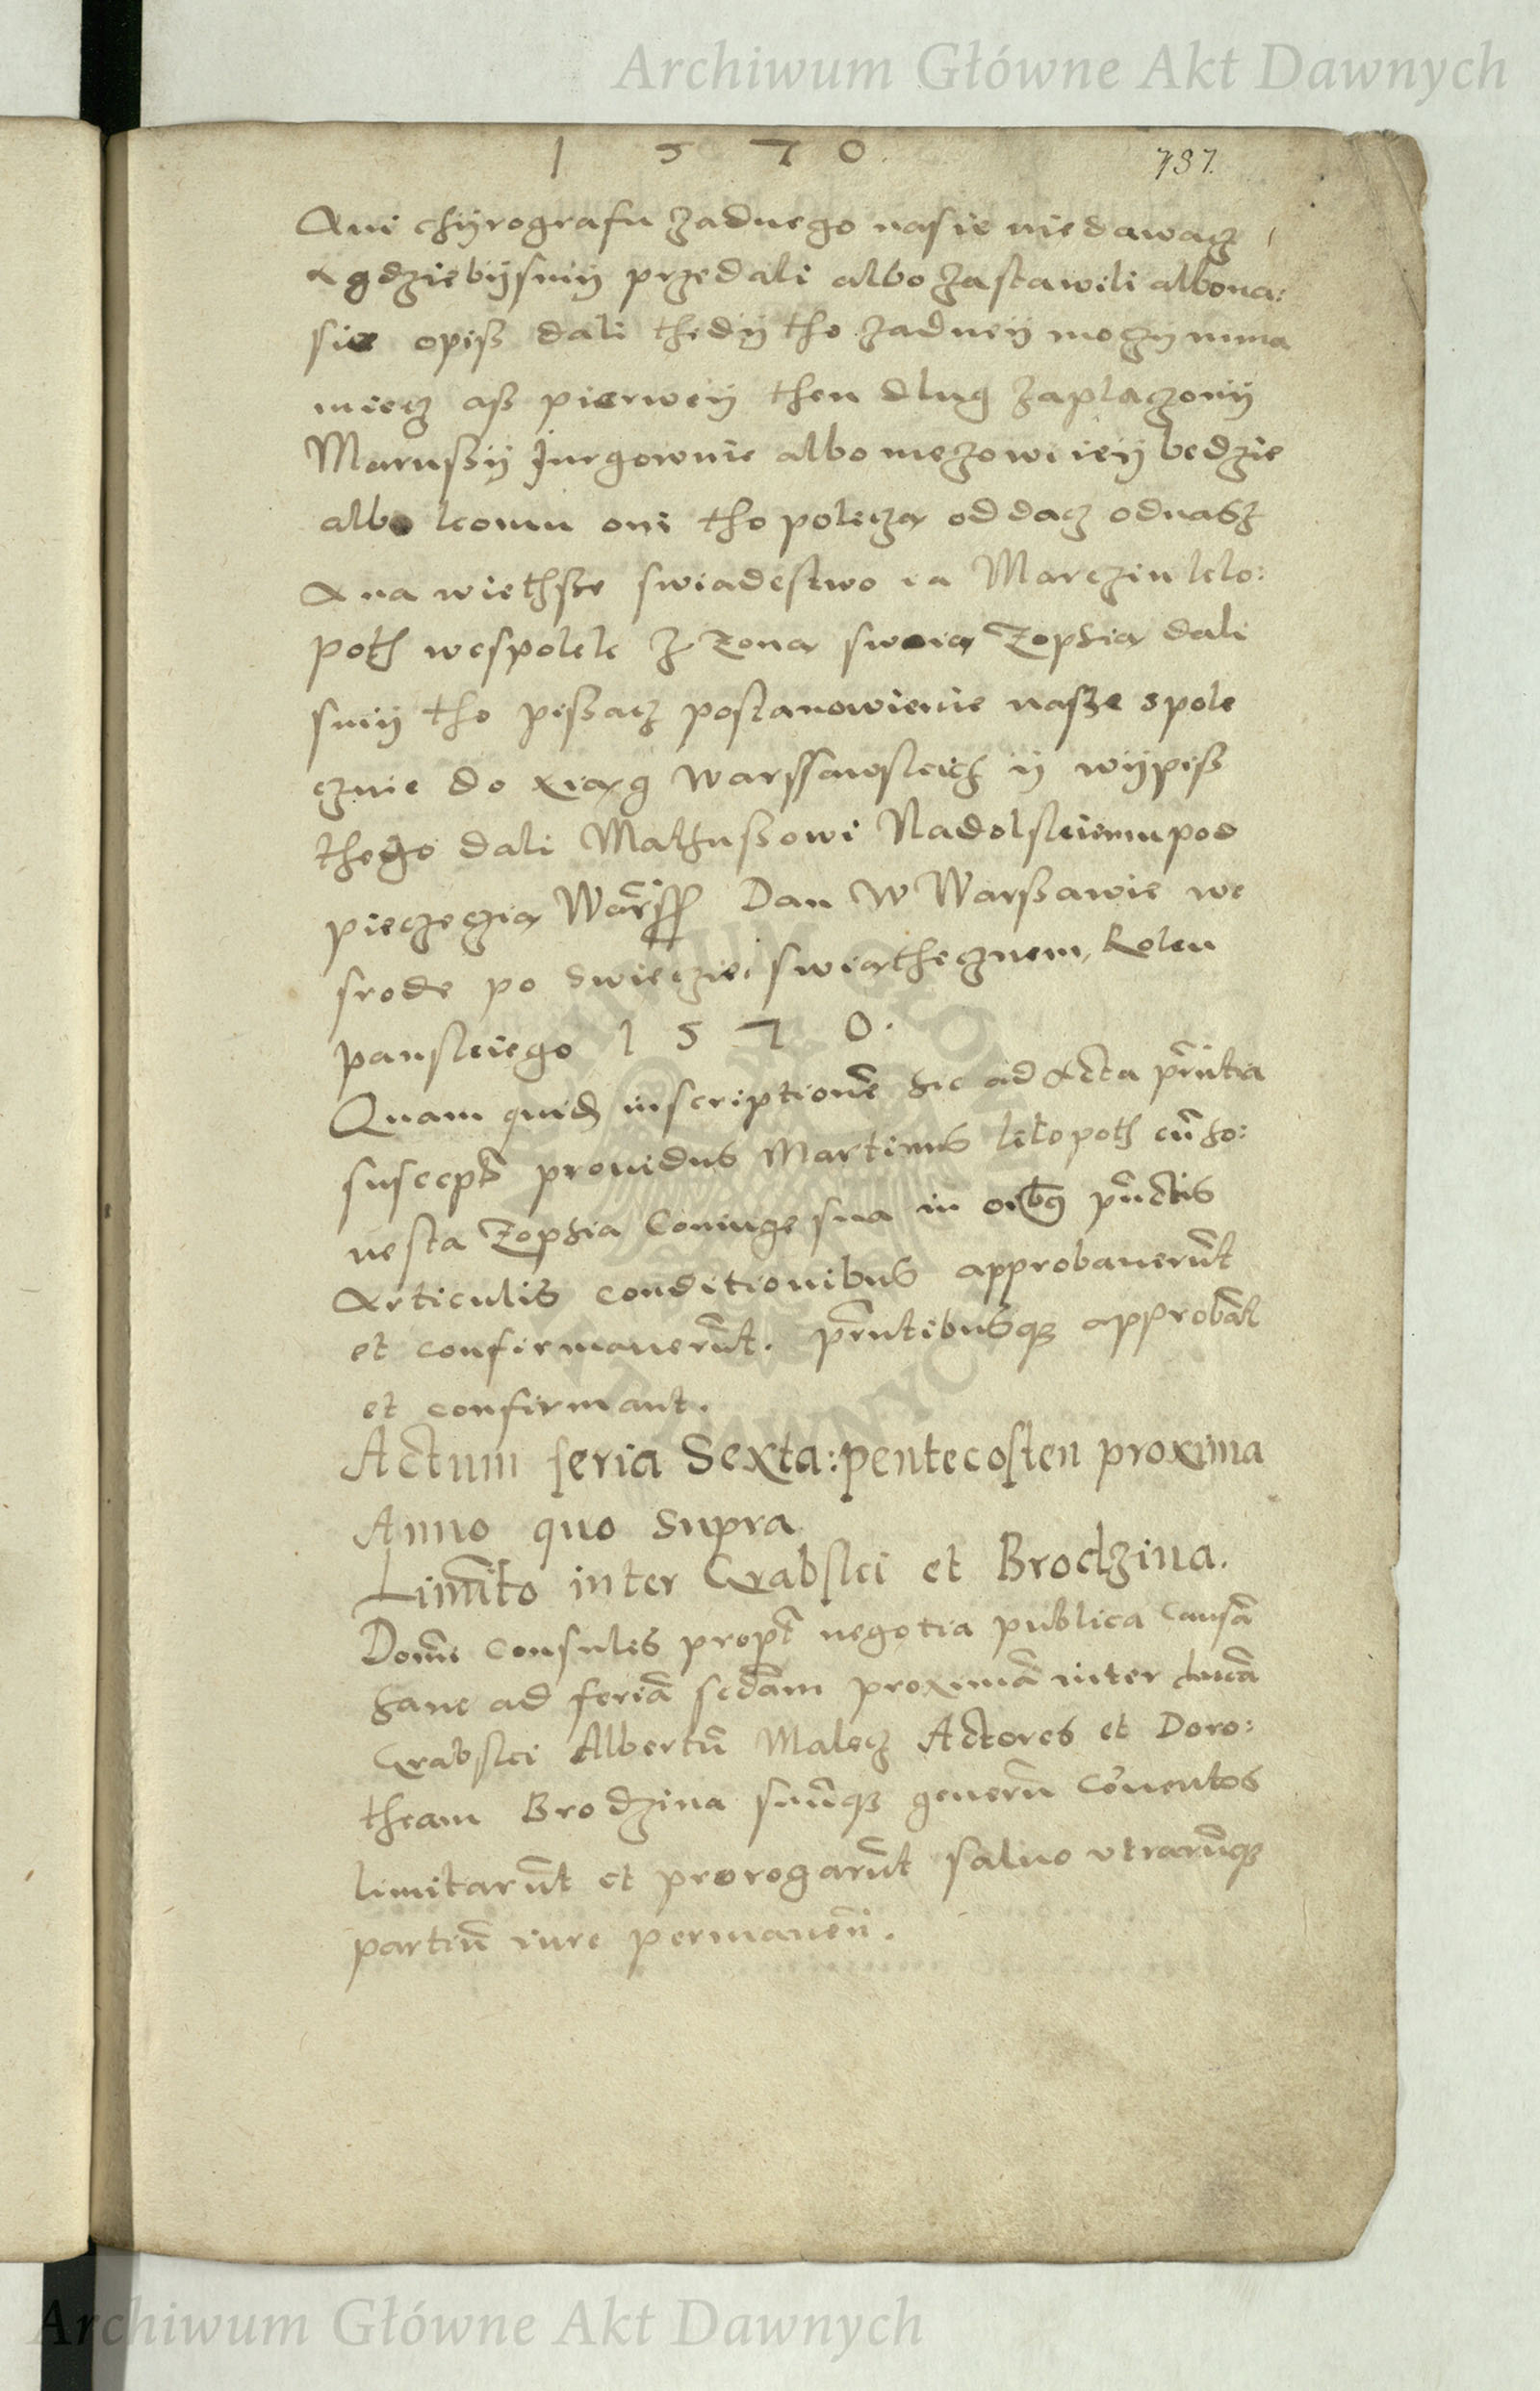 Archiwum Główne Akt Dawnych
1 5 7 0.
737.
Ani chÿrografu zadnego nasie niedawacz
A gdziebÿsmÿ przedali albo zastawili albona:
sie opiss dali thedÿ tho zadneÿ moczÿ nima
miecz ass pierweÿ then dlug zaplaczonÿ
Marussÿ Jurgownie albo mezowi ieÿ bedzie
albo komu oni tho polecza oddacz odnassz
A na wiethsze swiadestwo ia Marczin klo:
poth wespolek z Zona swoia Zophia dali
smÿ tho pissacz postanowienie nasze spole
cznie do xiag Warssawskich ÿ wÿpiss
thego dali Malhussowi Nadolskiemu pod
pieczeczia Warss Dan W Warssawie we
srode po swieczie swiathecznem, Roku
panskiego 1 5 7 0.
Quam quid inscriptione hic ad Acta pñtia
suscept prouidus Martinus klopoth cū ho:
nesta Zophia Coniuge sua in oib9 pūctis
Articulis conditionibus approbauerūt
et confirmauerūt. pñtibusqz approbāt
et confirmant.
Actum feria Sexta: pentecosten proxima
Anno quo supra
Limito inter Grabski et Brodzina.
Domi Consules propt negotia publica Causā
hanc ad feriā scdam proximā inter
Grabski Albertū Malecz Actores et Doro:
theam Brodzina suūqz generū Cōuentos
limitarūt et prorogarūt saluo vtrarūqz
partiū iure permaneñ.
Archiwum Główne Akt Dawnych